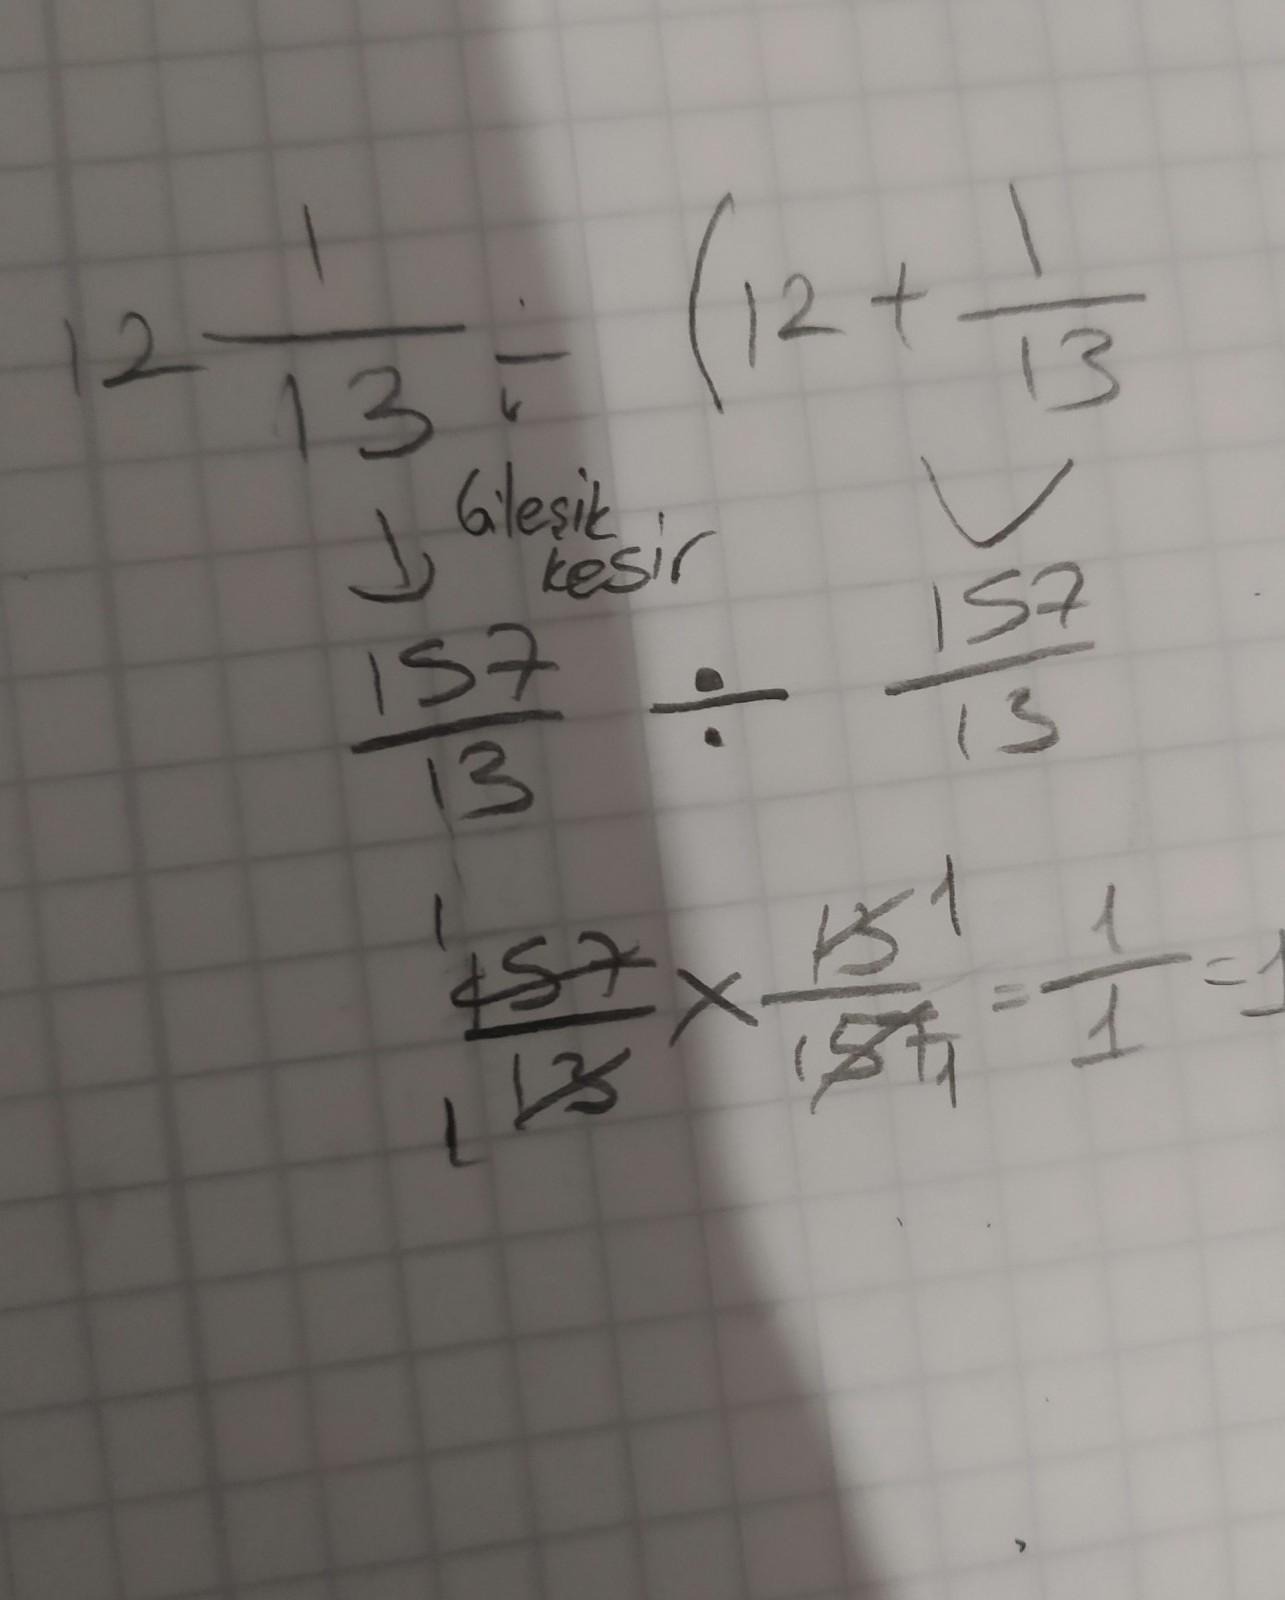 12 1/13 ÷ (12 + 1/13
↓ bileşik
kesir
157/13 ÷ 157/13
1 157/13 1 × 13 1/157 1 = 1/1 = 1